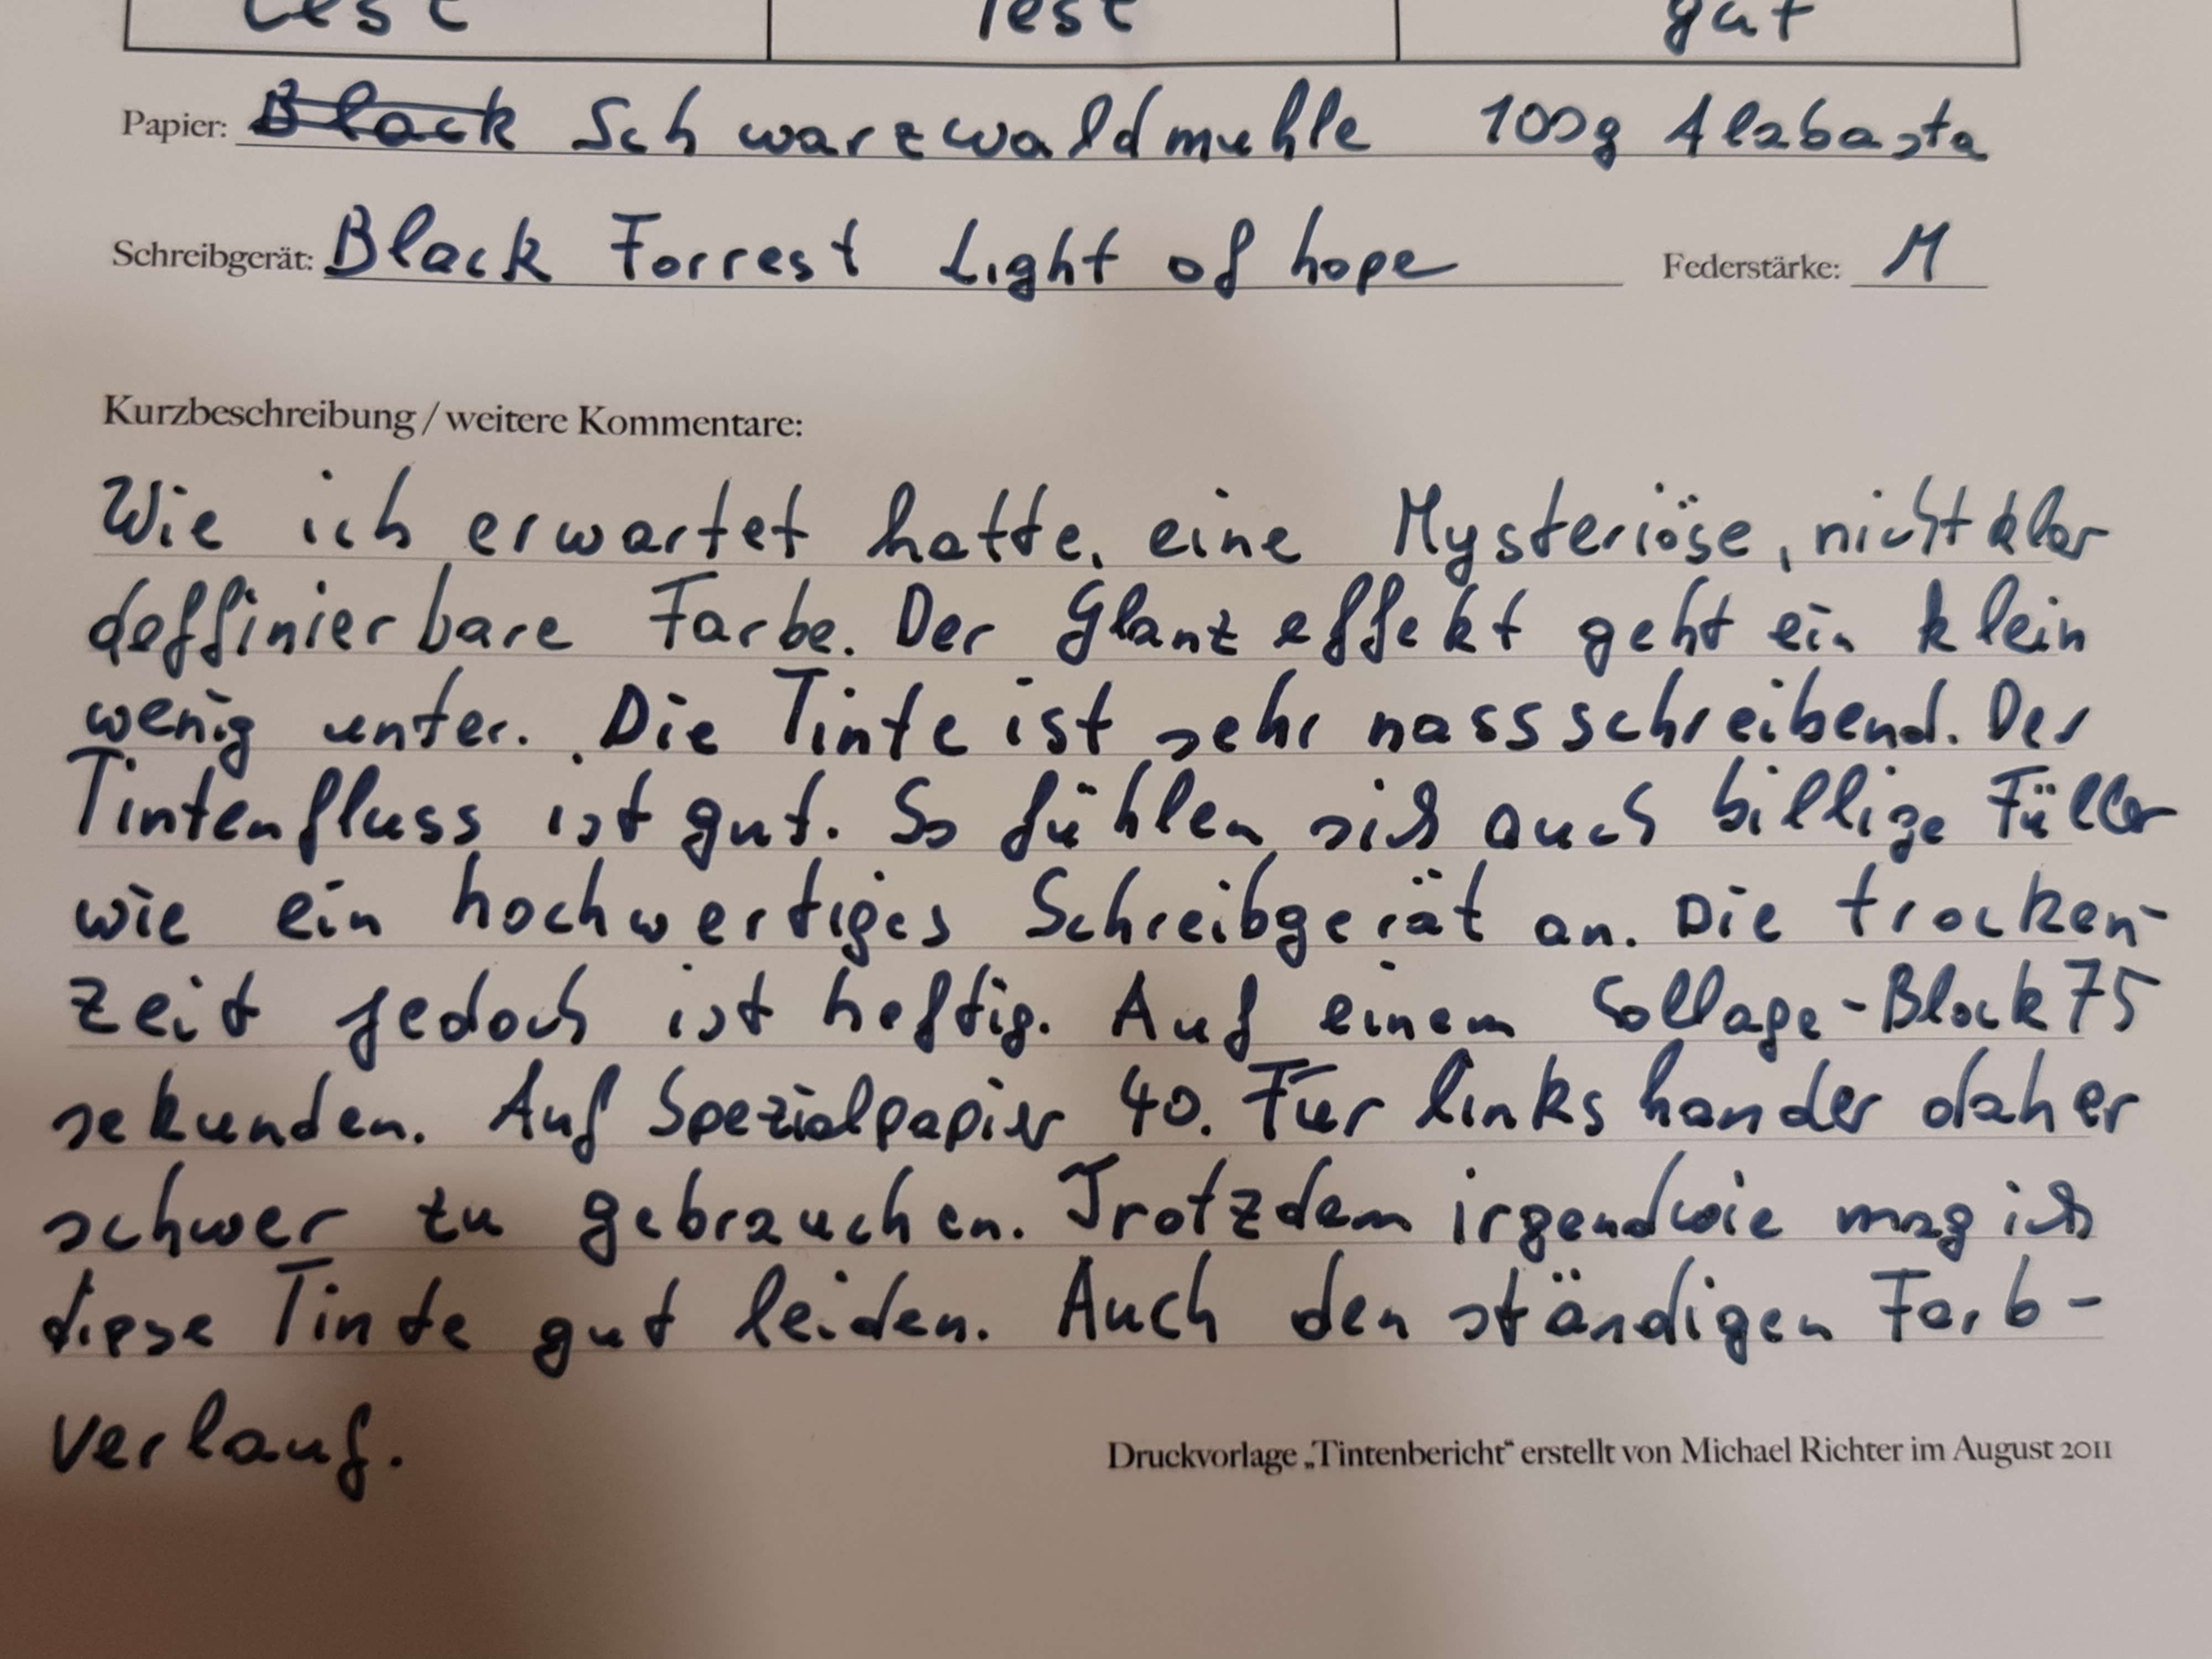 Test Test gut
Papier: Black Schwarzwaldmuhle 100g Alabasta
Schreibgerät: Black Forrest Light of hope Federstärke: M
Kurzbeschreibung / weitere Kommentare:
Wie ich erwartet hatte, eine Mysteriöse, nicht klar
deffinierbare Farbe. Der Glanzeffekt geht ein klein
wenig unter. Die Tinte ist sehr nassschreibend. Der
Tintenfluss ist gut. So fühlen sich auch billige Füller
wie ein hochwertiges Schreibgerät an. Die trocken-
zeit jedoch ist heftig. Auf einem Collage-Block 75
sekunden. Auf Spezialpapier 40. Für linkshander daher
schwer zu gebrauchen. Trotzdem irgendwie mag ich
diese Tinte gut leiden. Auch den ständigen Farb-
verlauf.
Druckvorlage „Tintenbericht“ erstellt von Michael Richter im August 2011